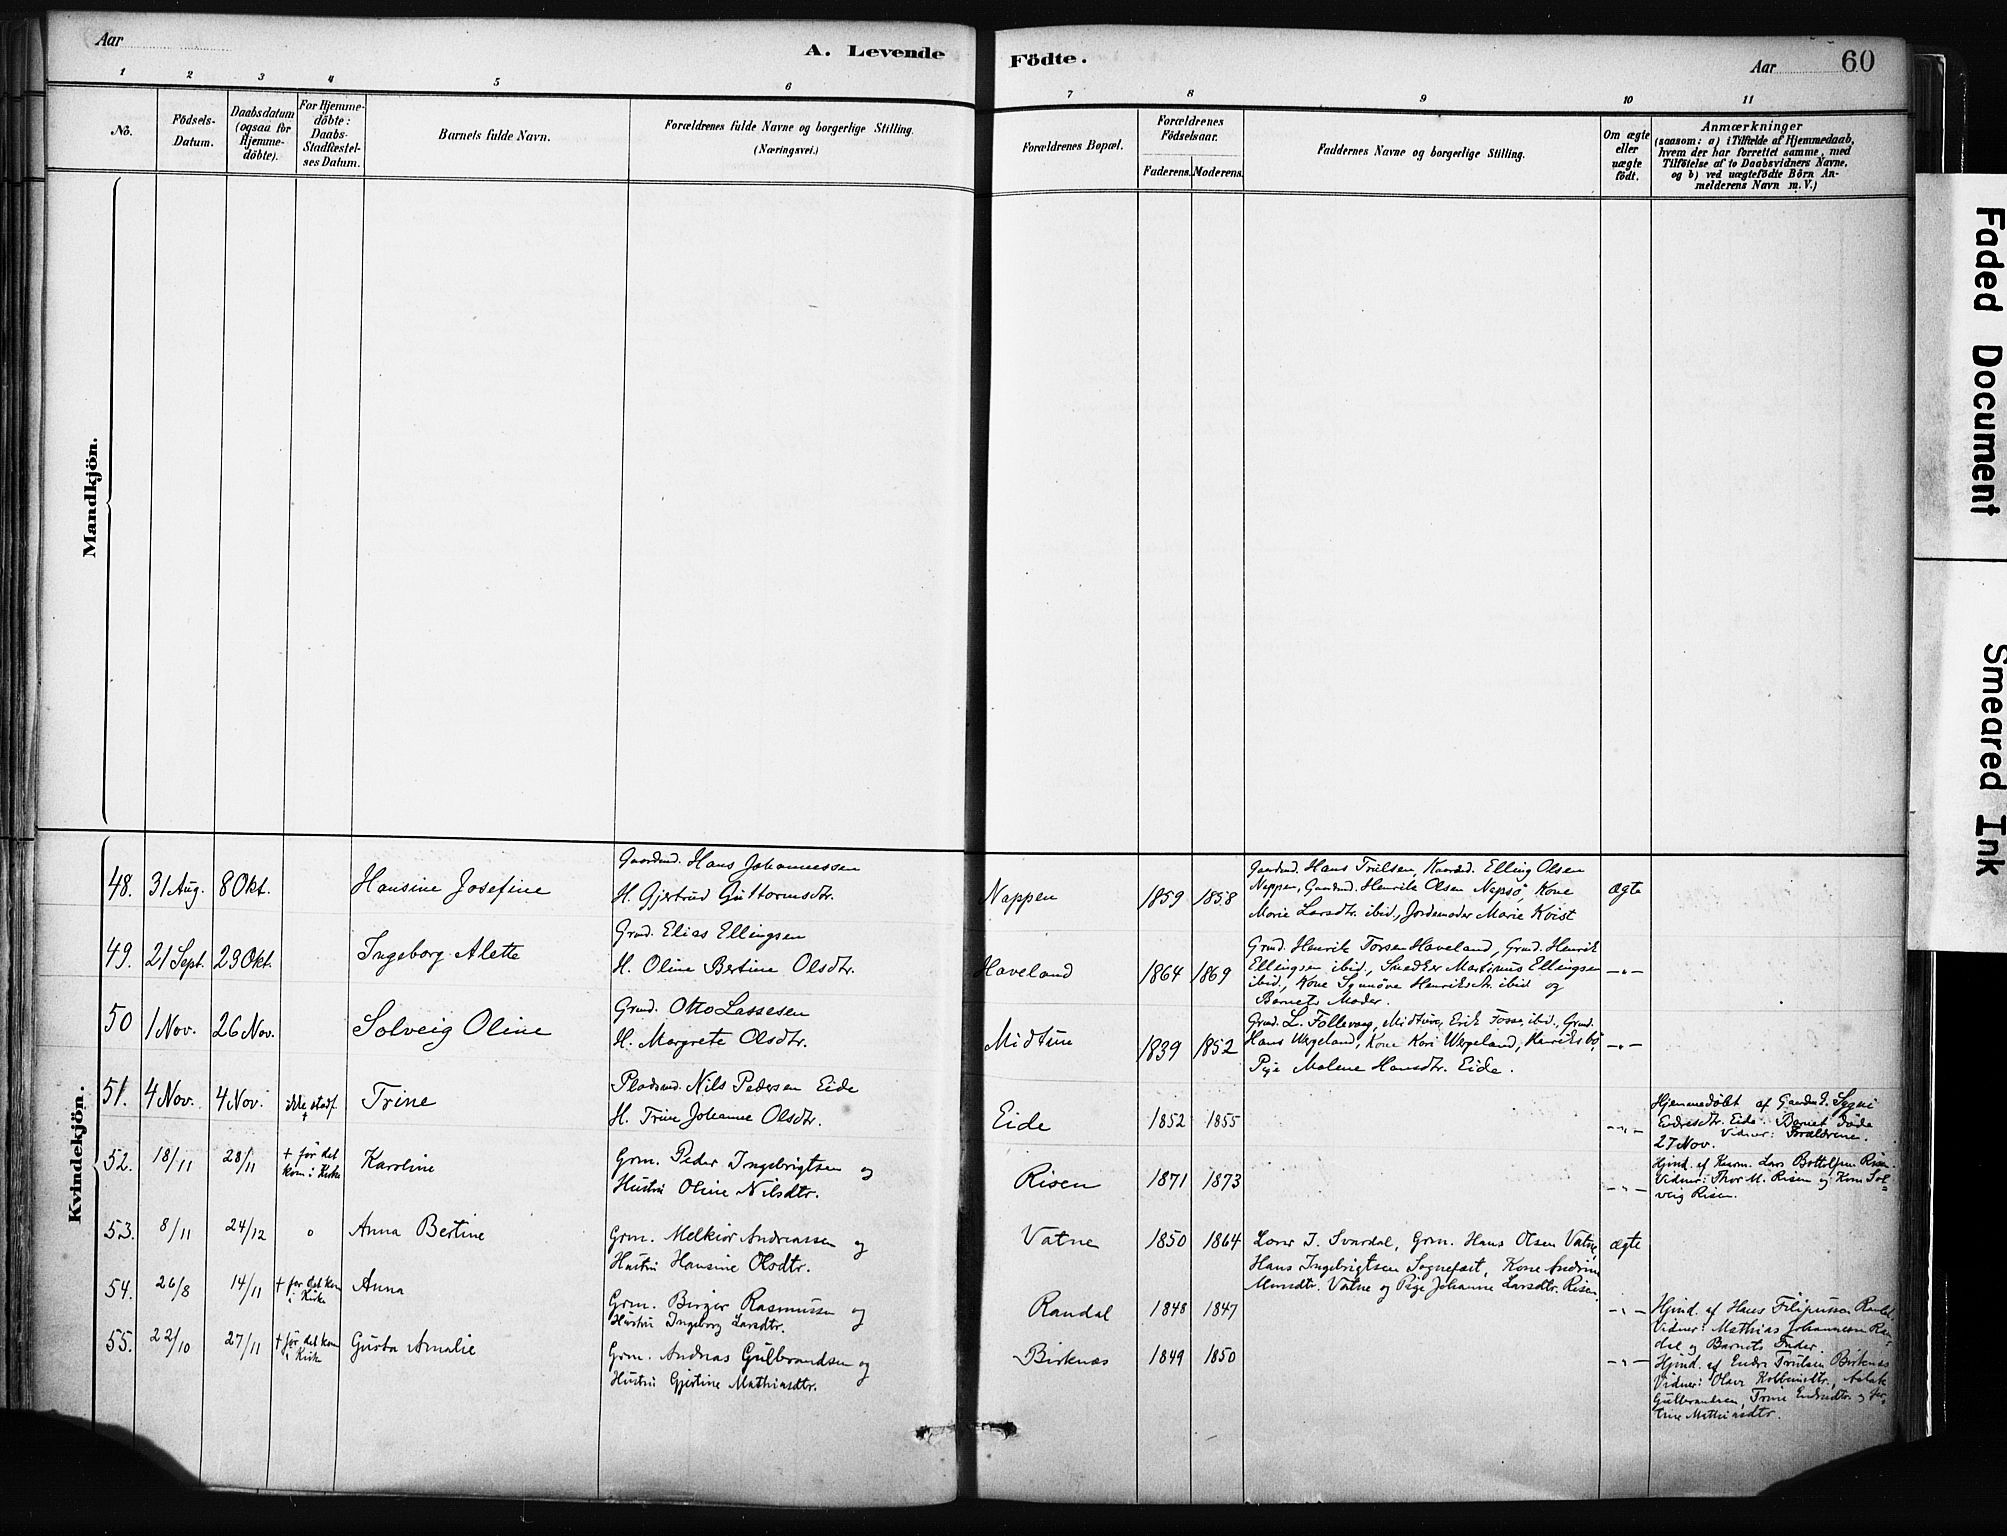 Aar
A. Levende
Födte.
Aar
60
1 2 3 4 5 6 7 8 9 10 11
No.
Födsels-
Datum.
Daabsdatum
(ogsaa for
Hjemme-
döbte).
For Hjemme-
döbte:
Daabs-
Stadfæstel-
ses Datum.
Barnets fulde Navn.
Forældrenes fulde Navne og borgerlige Stilling.
(Næringsvei.)
Forældrenes Bopæl.
Forældrenes
Födselsaar.
Faderens. Moderens.
Faddernes Navne og borgerlige Stilling.
Om ægte
eller
uægte
födt.
Anmærkninger
(saasom: a) i Tilfælde af Hjemmedaab,
hvem der har forrettet samme, med
Tilföielse af to Daabsvidners Navne,
og b) ved uægtefödte Börn An-
melderens Navn m. V.)
Mandkjön.
Kvindekjön.
48. 31 Aug. 8 Okt.
Hansine Josefine
Gaardmd. Hans Johannessen
H. Gjertrud Guttormsdtr.
Nappen
1859 1858
Gaardmd. Hans Trulsen, Elling Olsen
Nappen, Gaardmd. Henrik Olsen Nepsö, Kone
Marie Larsdtr. ibid., Jordemoder Marie Kvist
ægte
49. 21 Sept. 29 Okt.
Ingeborg Alette
Grmd. Elias Ellingsen
H. Oline Bertine Olsdtr.
Haveland
1864 1869
Grmd. Henrik Torsen Haveland, Grmd. Henrik
Ellingsen ibid., Martinus Ellingsen
ibid., Kone Synnöve Henriksdtr. ibid og
Barnets Moder.
-"-
50 1 Nov. 26 Nov.
Solveig Oline
Grmd. Otto Lassesen
H. Margrete Olsdtr.
Midtun
1839 1852
Grmd. L. Follevaag, Midtun, Erik Fosse, ibid., Grmd.
Hans Wergeland, Kone Kari Wergeland, Henriksbö,
Pige Malene Hansdtr. Eide.
-"-
51. 4 Nov. 4 Nov. ikke stadf.
Trine
Pladsmd. Nils Pedersen Eide
H. Trine Johanne Olsdtr.
Eide
1852 1855
-"-
Hjemmedöbt af Gaardmd.
Endresdtr. Eide. Barnet döde
27 Nov. Vidner: Forældrene.
52. 18/11 28/11 + för det
kom i Kirke
Karoline
Grm. Peder Ingebrigtsen og
Hustru Oline Nilsdtr.
Risen
1871 1873
-"-
Hjmd. af Lars Bottolfsen Risen
Vidner: Thor M. Risen og Kone Sol-
veig Risen.
53. 8/11 24/12 0
Anna Bertine
Grm. Melkior Andreassen og
Hustru Hansine Olsdtr.
Vatne
1850 1864
Lærer J. Svardal, Grm. Hans Olsen Vatne,
Hans Ingebrigtsen Sognefæst, Kone Andrine
Monsdtr. Vatne og Pige Johanne Larsdtr. Risen.
ægte
54. 26/8 14/11 + før det kom
i Kirke
Anna
Grm. Birger Rasmussen og
Hustru Ingeborg Larsdtr.
Randal
1848 1847
-"-
Hjmd. af Hans Filipussen Randal.
Vidner: Mathias Johannesen Ran-
dal og Barnets Fader.
55. 22/10 27/11 + för det kom
i Kirke
Gusta Amalie
Grm. Andreas Gulbrandsen og
Hustru Gjertine Mathiasdtr.
Birknæs
1849 1850
-"-
Hjmd. af Endre Trulsen Birknæs
Vidner: Olava Kolbeinsdtr., Aslak
Gulbrandsen, Trine Endresdtr. og Ger-
tine Mathiasdtr.
Faded Document
Smeared Ink